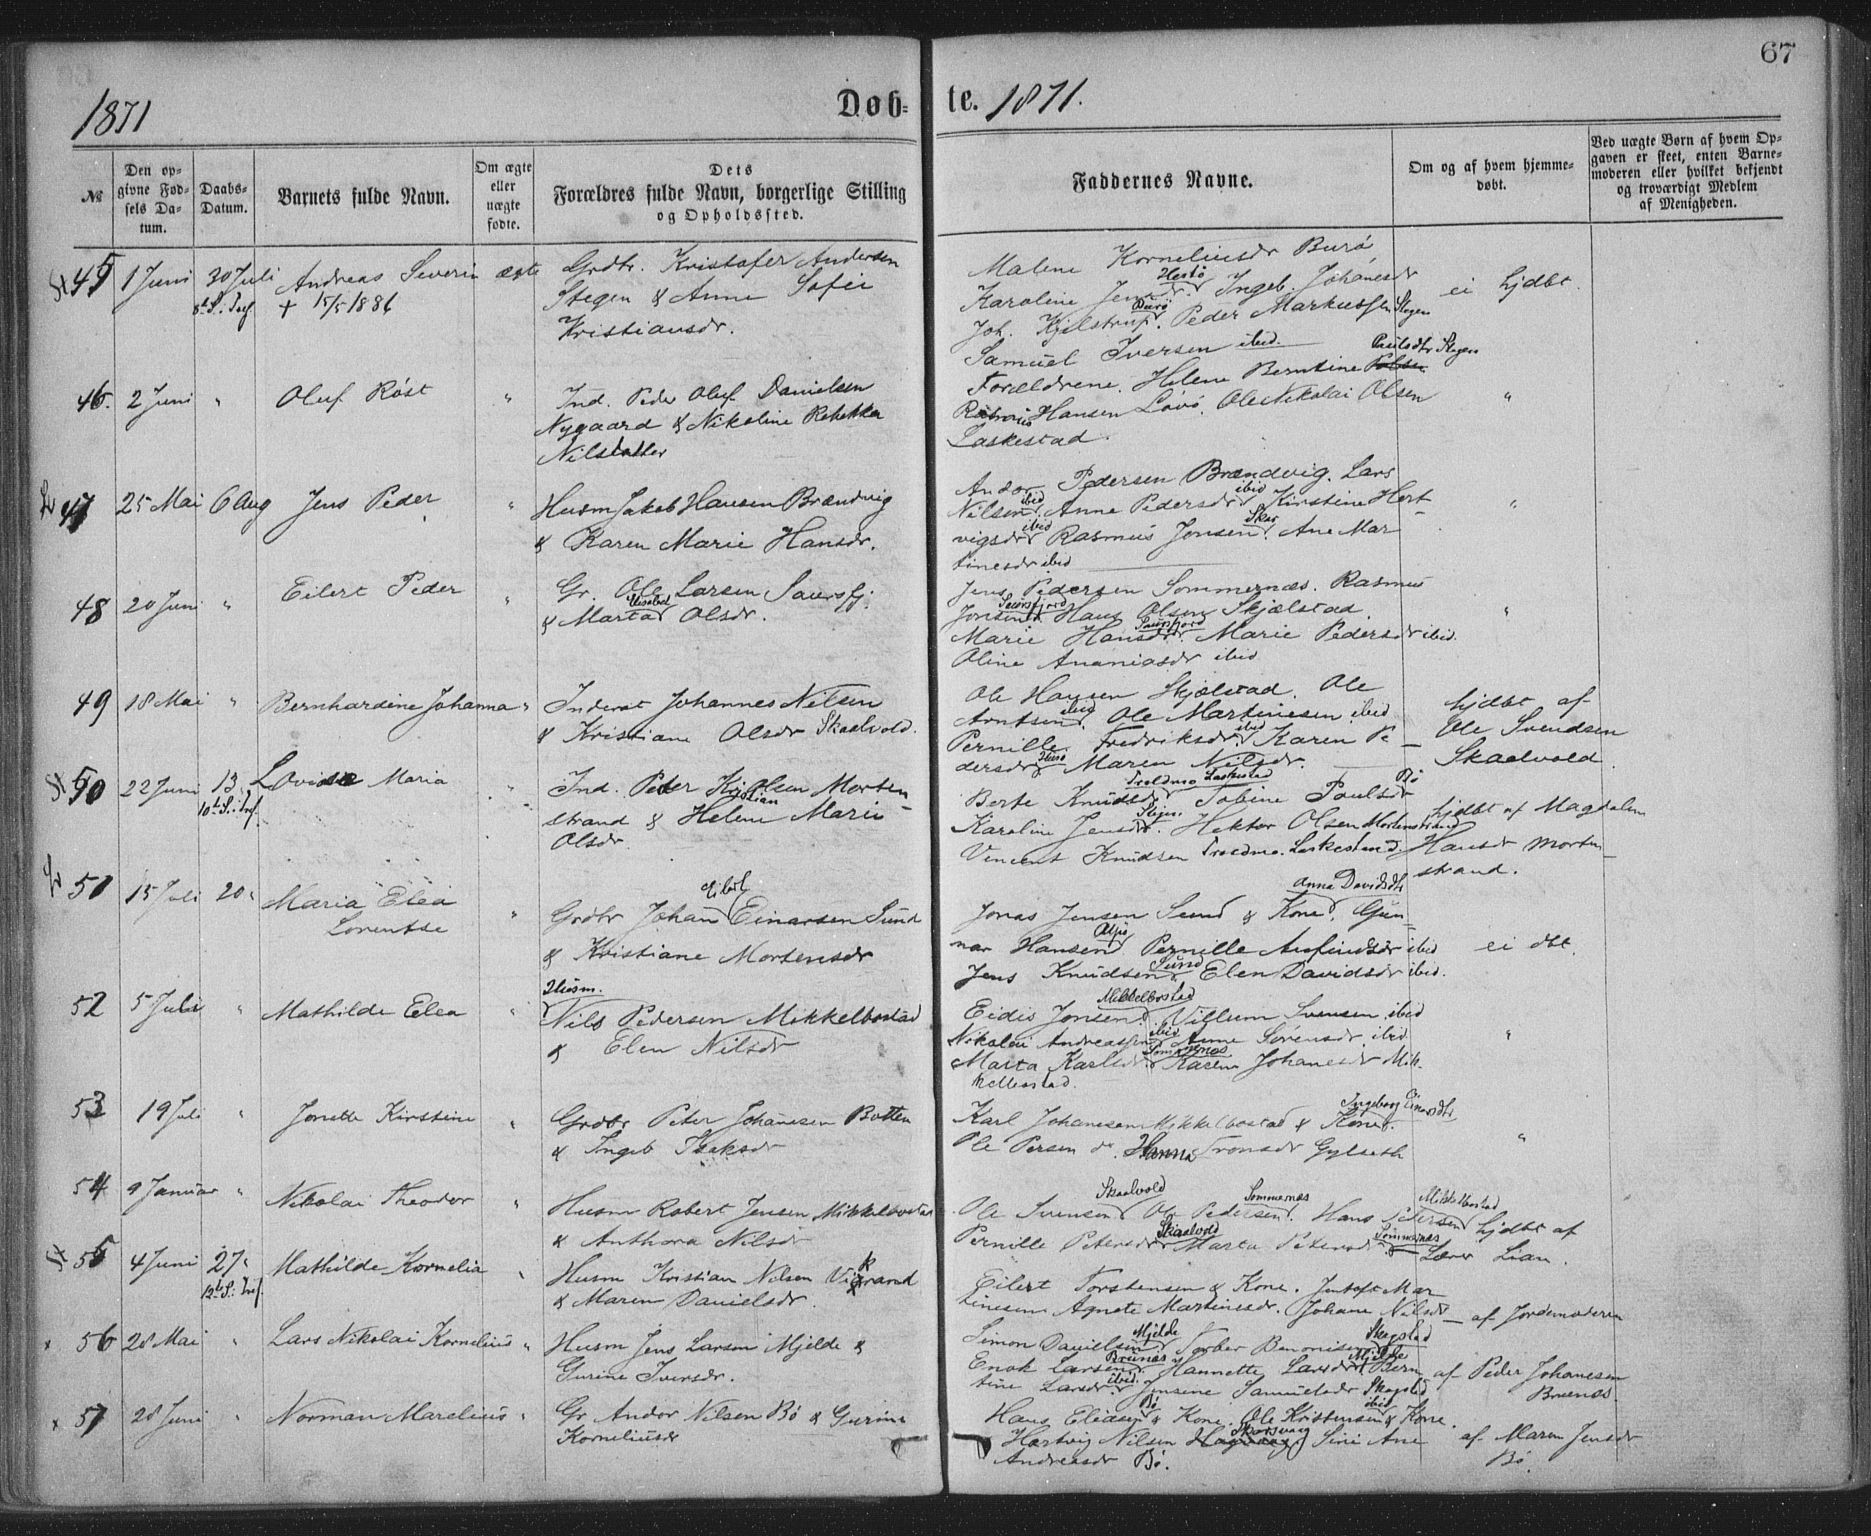 67
1871
Døb-
te. 1871.
№
Den op-
givne Fød-
sels Da-
tum.
Daabs-
Datum.
Barnets fulde Navn.
Om ægte
eller
uægte
fødte.
Dets
Forældres fulde Navn, borgerlige Stilling
og Opholdssted.
Faddernes Navne.
Om og af hvem hjemme-
døbt.
Ved uægte Børn af hvem Op-
gaven er skeet, enten Barne-
moderen eller hvilket bekjendt
og troværdigt Medlem
af Menigheden.
St 45 1 Juni 30 Juli Andreas Severin ægte Grdbr. Kristofer Andersen
8de S. Tref. + 15/5 1886 Stegen & Anne Sofie
Kristiansdr.
Malene Korneliusdr Burø,
Karoline Jensdr. Hestø Ingeb. Johansdr ei hjdbt.
Joh. Kjelstrup. Burø Peder Markussen Stegen
Samuel Iversen ibid.
46. 2 Juni " Oluf Røst " Ind. Peder Oluf Danielsen
Nygaard & Nikoline Rebekka
Nilsdatter
Forældrene. Helene Berntine Paulsdtr Stegen
Hansen Løvø. Ole Nikolai Olsen "
Laskestad.
L 47 25 Mai 6 Aug Jens Peder " Husm Jakob Hansen Brændvig
& Karen Marie Hansdr.
Andor Pedersen Brændvig. Lars
Nilsen ibid Anne Pedersdr ibid Kirstine Hert- "
vigsdr ibid Rasmus Jensen Skar. Ane Mar
tinesdr ibid
48 20 Juni " Eilert Peder " Gr. Ole Larsen Saursfj.
& Marta Elisabet Olsdr.
Jens Pedersen Sommernæs. Rasmus
Jonsen Saursfjord Hans Olsen Skjælstad "
Marie Hansdr. Saursfjord Marie Pedersdr ibid.
Oline Ananiasdr ibid
49 18 Mai " Bernhardine Johanna " Inderst Johannes Nilsen
& Kristiane Olsdr Skaalvold.
Ole Hansen Skjælstad. Ole
Arntsen ibid Ole Martinesen ibid
Pernille Fredriksdr ibid Karen Pe-
dersdr Maren Nilsdr.
hjdbt af
Ole Svendsen
Skaalvold.
St 50 22 Juni 13 " Lovise Maria " Ind. Peter Kristian Olsen Morten-
10de S. Tref. strand & Helene Marie
Olsdr.
Berte Knudsdr Troldmo Laskestad Tobine Poulsdr Bø
Karoline Jensdr. Hektor Olsen Mortenstrand
Vincent Knudsen Troldmo. Laskestad.
hjdbt af Magdalen
Hansdr Morten-
strand.
L 51 15 Juli 20 " Maria Elea " Grdbr Johan Eilert Einarsen Sund
Lorentse & Kristiane Mortensdr
Jonas Jensen Sund & Kone Anna Davidsdtr. Gun-
nar Hansen Pernille Anfindsdr ibid ei dbt
Jens Knudsen Sund Elen Davidsdr ibid.
52 5 Juli " Mathilde Elea " Husm.
Nils Pedersen Mikkelbostad
& Elen Nilsdr
Eidis Jensen Mikkelbostad Villum Svensen ibid
Nikolai Andreassen ibid Anne Sørensdr ibid "
Marta Karlsdr. Sommernæs Karen Johanesdr Mik-
kelbostad.
53 19 Juli " Jonette Kirstine " Grdbr Peter Johanesen Botten
& Ingeb Isaksdr
Karl Johanesen Mikkelbostad & Kone Ingeborg Einarsdtr.
Ole Persen do. Hanna Tronsdr Gylseth "
54 9 Januar " Nikolai Theodor " Husm Robert Jensen Mikkelbostad
& Anthora Nilsdr
Ole Svensen Skaalvold Ole Pedersen Sommernæs. Hans Petersen Mikkelbostad
Pernille Petersdr Skaalvold Marta Petersdr Sommernæs
hjdbt af
Lærer Lian.
St 55 4 Juni 27 " Mathilde Kornelia " Husm Kristian Nilsen Vikrand
12te S. Tref. & Maren Danielsdr.
Eilert Torstensen & Kone. Jentoft Mar
tinesen Agnete Martinesdr. Johane Nilsdr - af Jordemoderen
x 56 28 Mai " Lars Nikolai Kornelius " Husm Jens Larsen Mjelde &
Gurine Iversdr.
Simon Danielsen Mjelde Torber Benonisen Skogstad
Enok Larsen Brunæs Hannette Larsdr Mjelde Bern
tine Larsdr ibid. Jensene Samuelsdr Skogstad
af Peder Johanesen
Brunæs.
x 57 28 Juni " Norman Marelius " Gr Andor Nilsen Bø & Gurine
Korneliusdr
Hans Eliasen Bø & Kone. Ole Kristensen ibid & Kone.
Hartvig Nilsen Skotsvaag Sine Ane
Andreasdr Bø.
af Maren Jensdr
Bø.